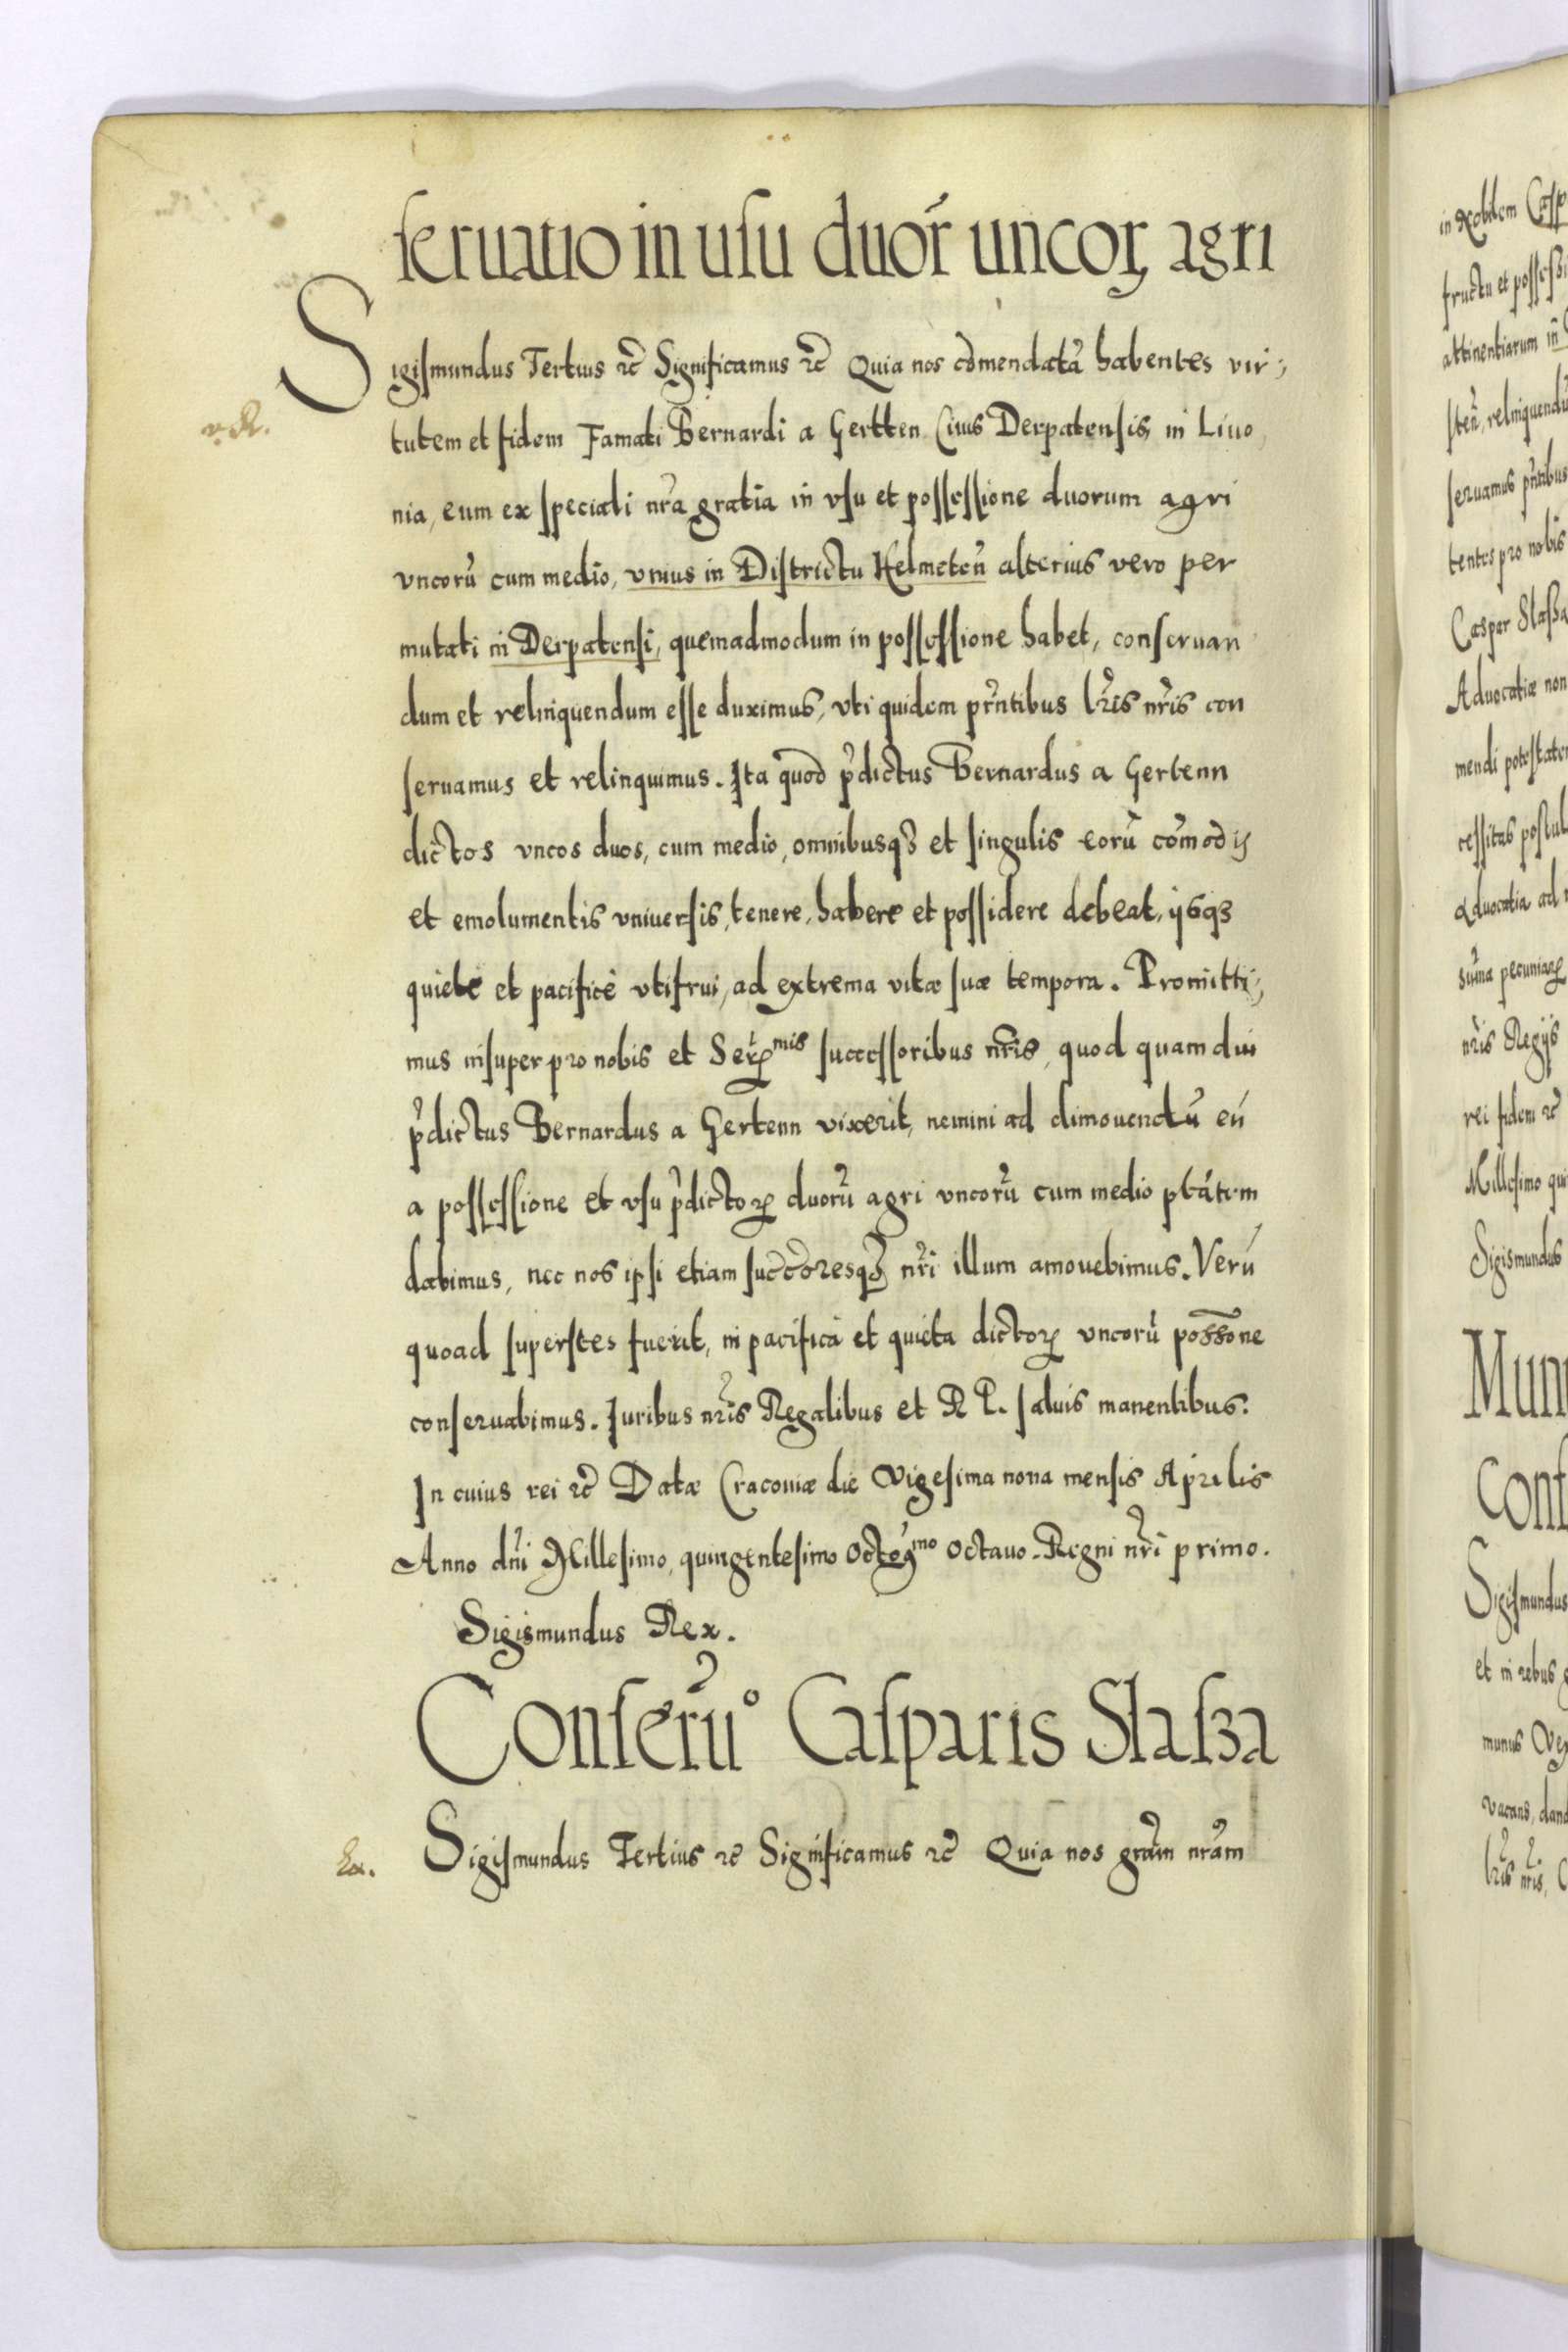 seruatio in usu duoꝝ uncoꝝ agri
Sigismundus Tertius ꝛc̃ Significamus ꝛc̃ Quia nos cõmendatã habentes vir-
tutem et fidem Famati Bernardi a Gertten Ciuis Derpatensis in Liuo,
nia, eum ex speciali nr̃a gratia in vsu et possessione duorum agri
vncorũ cum medio, vnius in Districtu Helmeteñ alterius vero per
mutati in Derpatensi, quemadmodum in possessione habet, conseruan
dum et relinquendum esse duximus, vti quidem pr̃ntibus lr̃is nr̃is con
seruamus et relinquimus. Ita quod p̃dictus Bernardus a Gertenn
dictos vncos duos, cum medio, omnibusqꝫ et singulis eorũ cõmodijs
et emolumentis vniuersis, tenere, habere et possidere debeat, ijsqꝫ
quiete et pacificè vtifrui, ad extrema vitæ suæ tempora. Promitti-
mus insuper pro nobis et Serꝝmis successoribus nr̃is, quod quam diu
p̃dictus Bernardus a Gertenn vixerit, nemini ad dimouendũ eũ
a possessione et vsu p̃dictoꝝ duorũ agri vncorũ cum medio ptãtem
dabimus, nec nos ipsi etiam succ̃oresqꝫ nr̃i illum amouebimus. Verũ
quoad superstes fuerit, in pacifica et quieta dictoꝝ vncorũ possõne
conseruabimus. Iuribus nr̃is Regalibus et R P. saluis manentibus.
In cuius rei ꝛc̃ Datæ Cracouiæ die Vigesima nona mensis Aprilis
Anno dñi Millesimo, quingentesimo Octogmo octauo. Regni nr̃i primo.
Sigismundus Rex.
Conserũo Casparis Slassa
Sigismundus Tertius ꝛc̃ Significamus ꝛc̃ Quia nos grãm nr̃am
in Nobilem Casp
fructu et possessi
attinentiarum in
steñ, relinquendũ
seruamus pr̃ntibus
tentes pro nobis
Casper Slassa
Aduocatiæ non
mendi potestatem
cessitas postul
Aduocatia ad
sum̃a pecuniaꝝ
nr̃is Regijs
rei fidem ꝛc̃
Millesimo qui
Sigismundus
Mun
Conf
Sigismundus
et in rebus
munus
vacans, dand
lr̃is nr̃is,